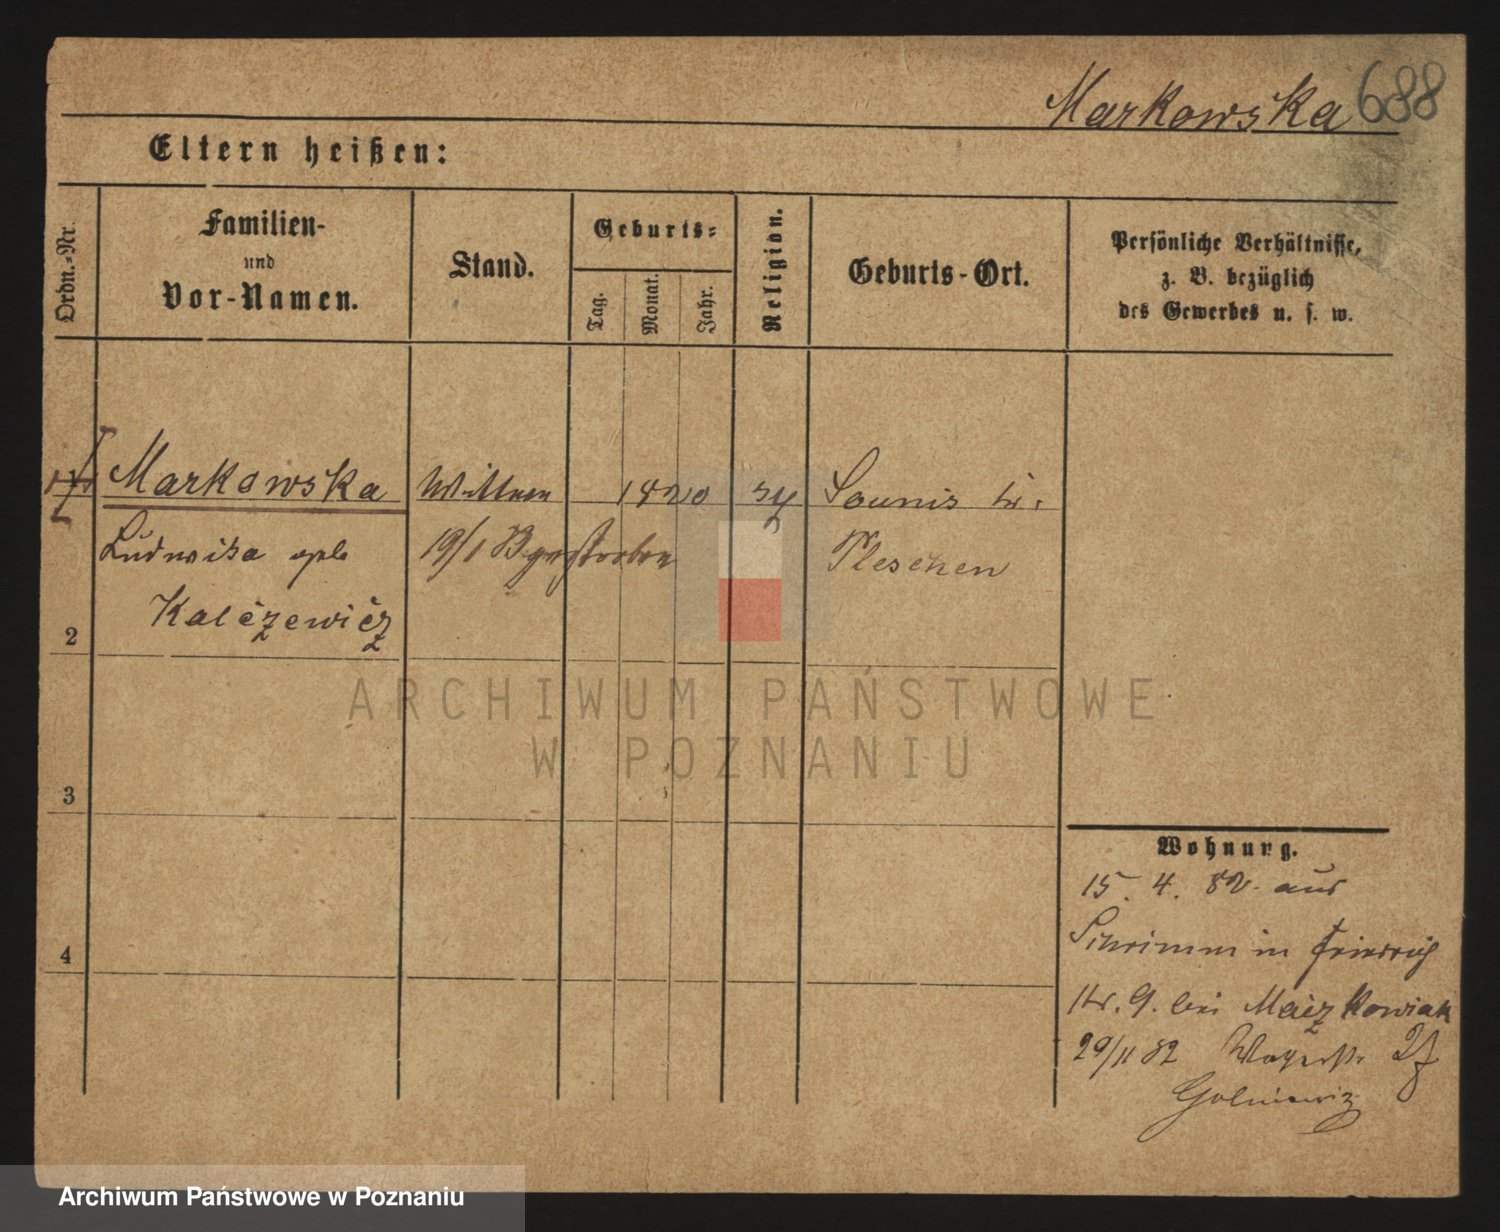 Markowska 688
Eltern heißen:
Ordn.-Nr.
Familien-
und
Vor-Namen.
Stand.
Geburts-
Tag.
Monat.
Jahr.
Religion.
Geburts-Ort.
Persönliche Verhältnisse,
z. B. bezüglich
des Gewerbes u. s. w.
Markowska Wittwe 1820
Ludwika
19/1 gestorben
Pleschen
Kalczewicz
2
3
4
Wohnung.
15. 4. 82. aus
Schrimm in Friedrich
Str. 9. bei Maczkowiak
29/11 82
ARCHIWUM PAŃSTWOWE
W POZNANIU
Archiwum Państwowe w Poznaniu